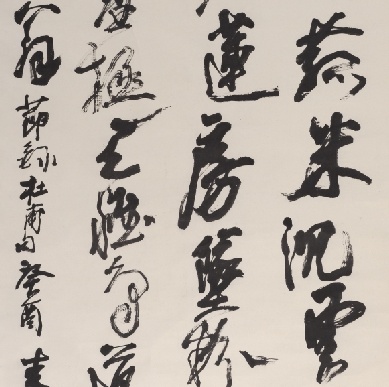 菰米沉雲
蓮房墜粉
塞極天唯鳥道
翁 節錄杜甫句 癸酉春